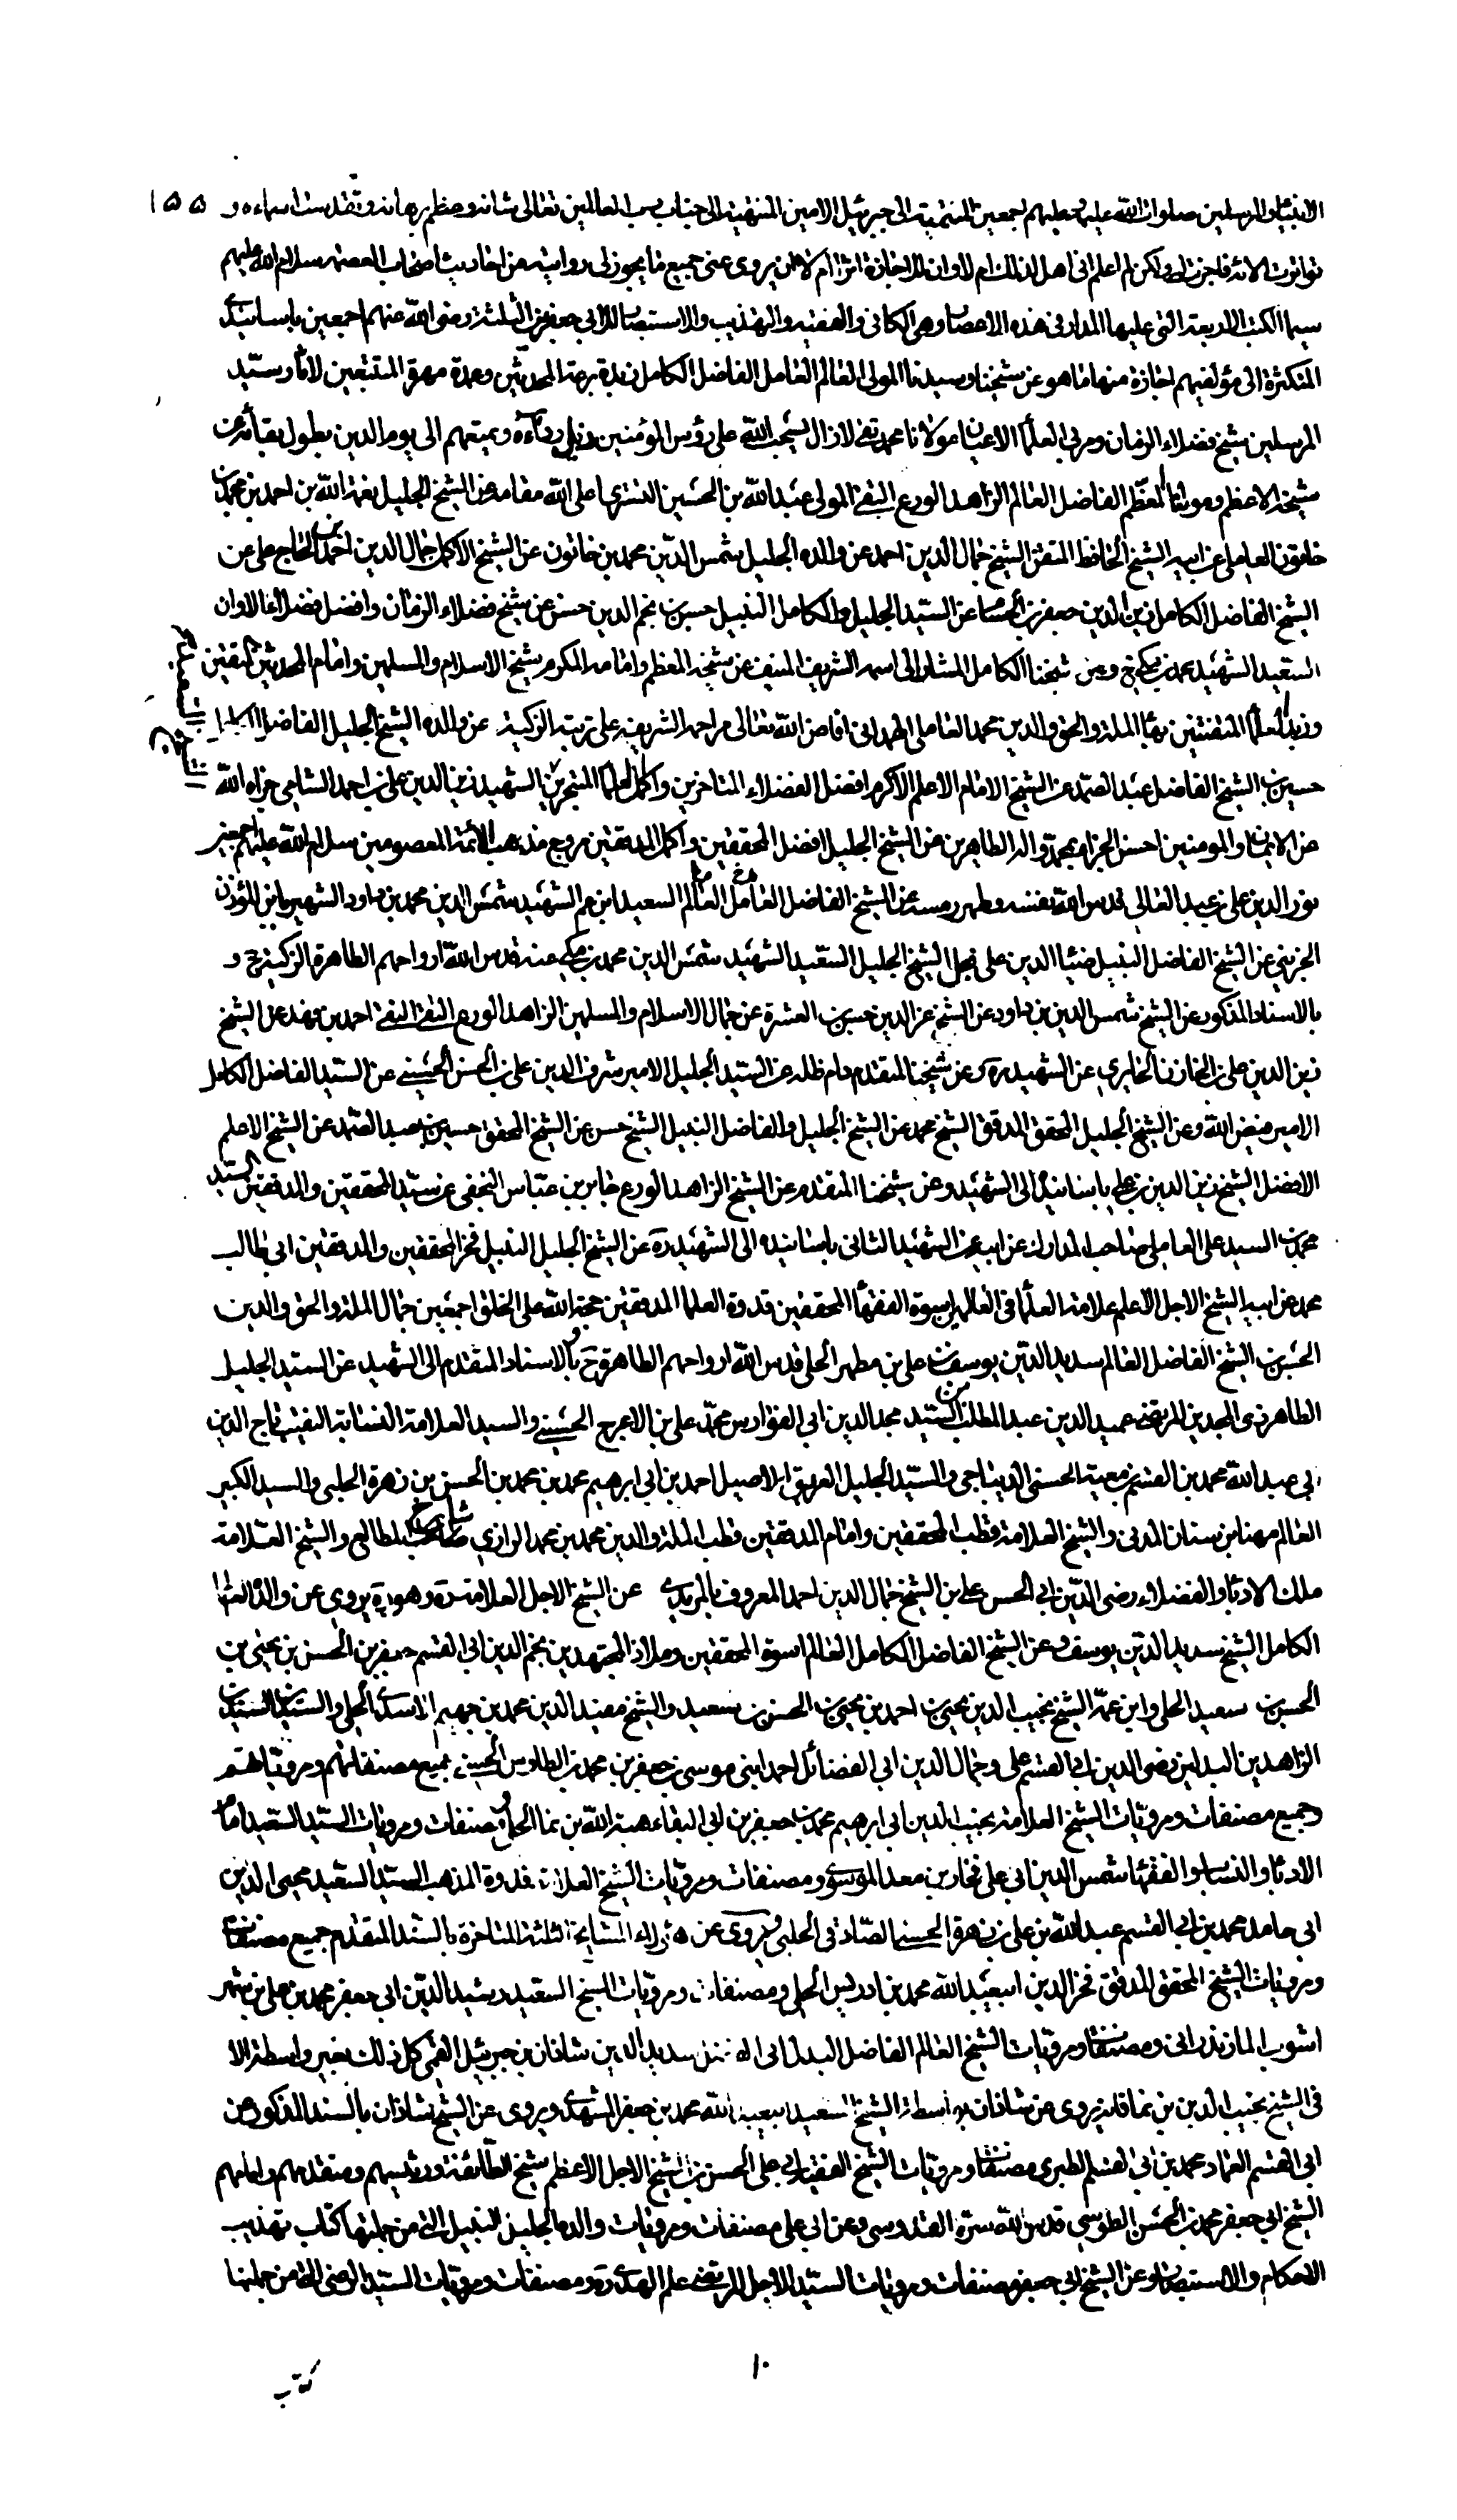 ١٥٥
الانبياء والمرسلين صلوات الله عليه وعليهم اجمعين المنتهية الى جبرئيل الامين المنتهية الى جناب رب العالمين تعالى شانه وعظم برهانه وتقدست اسماءه و
تواترت الائه فاجزت له ولكن لم اعلم انى اهل لذلك ام لا وان لهذا اجازة اثرا ام لا ان يروى عنى جميع ما يجوز لى روايته من احاديث اصحاب العصمة سلام الله عليهم
سيما الكتب الاربعة التى عليها المدار فى هذه الاعصار وهى الكافى والفقيه والتهذيب والاستبصار للابى جعفرين الثلثة رضى الله عنهم اجمعين باسانيدى
المتكثرة الى مؤلفيهم اجازة منها ما هو عن شيخنا وسيدنا المولى العالم العامل الفاضل الكامل زبدة برعة المحدثين وعمدة مهرة المتتبعين لاثار سيد
المرسلين شيخ فضلاء الزمان ومربى العلماء الاعيان مولانا محمد تقى لازال يسحب الله على رؤس المؤمنين ذيل رداءه ويمتعهم الى يوم الدين بطول بقائه عن
شيخه الاعظم ومولانا المعظم الفاضل العالم الزاهد الورع التقى المولى عبد الله بن الحسين التسترى اعلى الله مقامه عن الشيخ الجليل نعمة الله بن احمد بن محمد بن
خاتون العاملى عن ابيه الشيخ الحافظ المتقن الشيخ جمال الدين احمد عن والده الجليل شمس الدين محمد بن خاتون عن الشيخ الاكمل جمال الدين احمد بن الحاج على عن
الشيخ الفاضل الكامل زين الدين جعفر بن الحسام عن السيد الجليل والكامل النبيل حسن بن نجم الدين حسن عن شيخ فضلاء الزمان وافضل فضلاء الاوان
السعيد الشهيد محمد بن مكى ح وعن شيخنا الكامل المشار الى اسمه الشريف المنيف عن شيخه المعظم وامامه المكرم شيخ الاسلام والمسلمين وامام المحدثين المتقين
وزبدة العلماء المتفننين بهاء الملة والحق والدين محمد العاملى الهمدانى افاض الله تعالى مراحمه الشريفة على تربته الزكية عن والده الشيخ الجليل الفاضل
حسين بن الشيخ الفاضل عبد الصمد عن الشيخ الامام الاعلم الاكرم افضل الفضلاء المتاخرين واكمل العلماء المتبحرين الشهيد زين الدين على بن احمد الشامى جزاه الله
عن الايمان والمؤمنين احسن الجزاء بمحمد واله الطاهرين عن الشيخ الجليل افضل المحققين واكمل المدققين مروج مذهب الائمة المعصومين سلام الله عليهم اجمعين
نور الدين على بن عبد العالى قدس الله نفسه وطهر رمسه عن الشيخ الفاضل العامل العالم السعيد ابن عم الشهيد شمس الدين محمد بن داود الشهير بابن المؤذن
الجزينى عن الشيخ الفاضل النبيل ضياء الدين على نجل الشيخ الجليل السعيد الشهيد شمس الدين محمد بن مكى عنه قدس الله ارواحهم الطاهرة الزكية ح و
بالاسناد المذكور عن الشيخ شمس الدين بن داود عن الشيخ عز الدين حسين بن العشرة عن جمال الاسلام والمسلمين الزاهد الورع التقى النقى احمد بن فهد عن الشيخ
زين الدين على بن الخازن الحايرى عن الشهيد ره وعن شيخنا المتقدم دام ظله عن السيد الجليل الامير شرف الدين على بن الحسن الحسينى عن السيد الفاضل الكامل
الامير فيض الله وعن الشيخ الجليل المحقق المدقق الشيخ محمد عن الشيخ الجليل والفاضل النبيل الشيخ حسن عن الشيخ المحقق حسين بن عبد الصمد عن الشيخ الاعلم
الافضل الشيخ زين الدين بن على باسانيده الى الشهيد وعن شيخنا المتقدم عن الشيخ الزاهد الورع جابر بن عباس النجفى عن سيد المحققين والمدققين السيد
محمد بن السيد على العاملى صاحب المدارك عن ابيه عن الشهيد الثانى باسانيده الى الشهيد ره عن الشيخ الجليل النبيل فخر المحققين والمدققين ابى طالب
محمد عن ابيه الشيخ الاجل الاعلم علامة العلماء فى العالمين اسوة الفقهاء المحققين قدوة العلماء المدققين حجة الله على الخلق اجمعين جمال الملة والحق والدين
الحسن بن الشيخ الفاضل العالم سديد الدين يوسف بن على بن مطهر الحلى قدس الله ارواحهم الطاهرة ح وبالاسناد المتقدم الى الشهيد عن السيد الجليل
الطاهر ذى المجدين المرتضى عميد الدين عبد المطلب بن السيد مجد الدين ابى الفوارس محمد بن على بن الاعرج الحسينى والسيد العلامة النسابة النقيب تاج الدين
ابى عبد الله محمد بن القسم بن معية الحسنى الديباجى والسيد الجليل العريق الاصيل احمد بن ابى ابرهيم محمد بن محمد بن الحسن بن زهرة الحلبى والسيد الكبير
العالم مهنا بن سنان المدنى والشيخ العلامة قطب المحققين وامام المدققين قطب الملة والدين محمد بن محمد الرازى صاحب المطالع والشيخ العلامة
ملك الادباء والفضلاء رضى الدين ابى الحسن على بن الشيخ جمال الدين احمد المعروف بالمزيدى عن الشيخ الاجل العلامة ره وهو ره يروى عن والده العالم
الكامل الشيخ سديد الدين يوسف وعن الشيخ الفاضل الكامل العالم اسوة المحققين وملاذ المجتهدين نجم الدين ابى القسم جعفر بن الحسن بن يحيى بن
الحسن بن سعيد الحلى وابن عمه الشيخ نجيب الدين يحيى بن احمد بن يحيى بن الحسن بن سعيد والشيخ مفيد الدين محمد بن جهيم الاسدى الحلى والسيدين السندين
الزاهدين البدلين رضى الدين ابى القسم على وجمال الدين ابى الفضائل احمد ابنى موسى بن جعفر بن محمد بن الطاوس الحسينى جميع مصنفاتهم ومروياتهم
وجميع مصنفات ومرويات الشيخ العلامة نجيب الدين ابى ابرهيم محمد بن جعفر بن ابى البقاء هبة الله بن نما الحلى ومصنفات ومرويات السيد السعيد امام
الادباء والنساب والفقهاء شمس الدين ابى على فخار بن معد الموسوى ومصنفات ومرويات الشيخ العلامة قدوة المذهب السيد السعيد محيى الدين
ابى حامد محمد بن ابى القسم عبد الله بن على بن زهرة الحسينى الصادقى الحلبى ويروى عن هؤلاء المشايخ الثلثة المتاخرة بالسند المتقدم جميع مصنفات
ومرويات الشيخ المحقق المدقق فخر الدين ابى عبد الله محمد بن ادريس الحلى ومصنفات ومرويات الشيخ السعيد رشيد الدين ابى جعفر محمد بن على بن شهر
اشوب المازندرانى ومصنفات ومرويات الشيخ العالم الفاضل البدل ابى الفضل سديد الدين شاذان بن جبرئيل القمى كل ذلك بغير واسطة الا
فى الشيخ نجيب الدين بن نما فانه يروى عن شاذان بواسطة الشيخ السعيد ابى عبد الله محمد بن جعفر المشهدى ويروى عن الشيخ شاذان بالسند المذكور عن
ابى القسم العماد محمد بن ابى القسم الطبرى مصنفات ومرويات الشيخ الفقيه ابى على الحسن بن الشيخ الاجل الاعظم شيخ الطائفة ورئيسهم ومتقدمهم وامامهم
الشيخ ابى جعفر محمد بن الحسن الطوسى قدس الله سره القدوسى وعن ابى على مصنفات ومرويات والده الجليل النبيل التى من جملتها كتاب تهذيب
الاحكام والاستبصار وعن الشيخ ابى جعفر مصنفات ومرويات السيد الاجل المرتضى علم الهدى ره ومصنفات ومرويات السيد الرضى التى من جملتها
١٠
كتاب